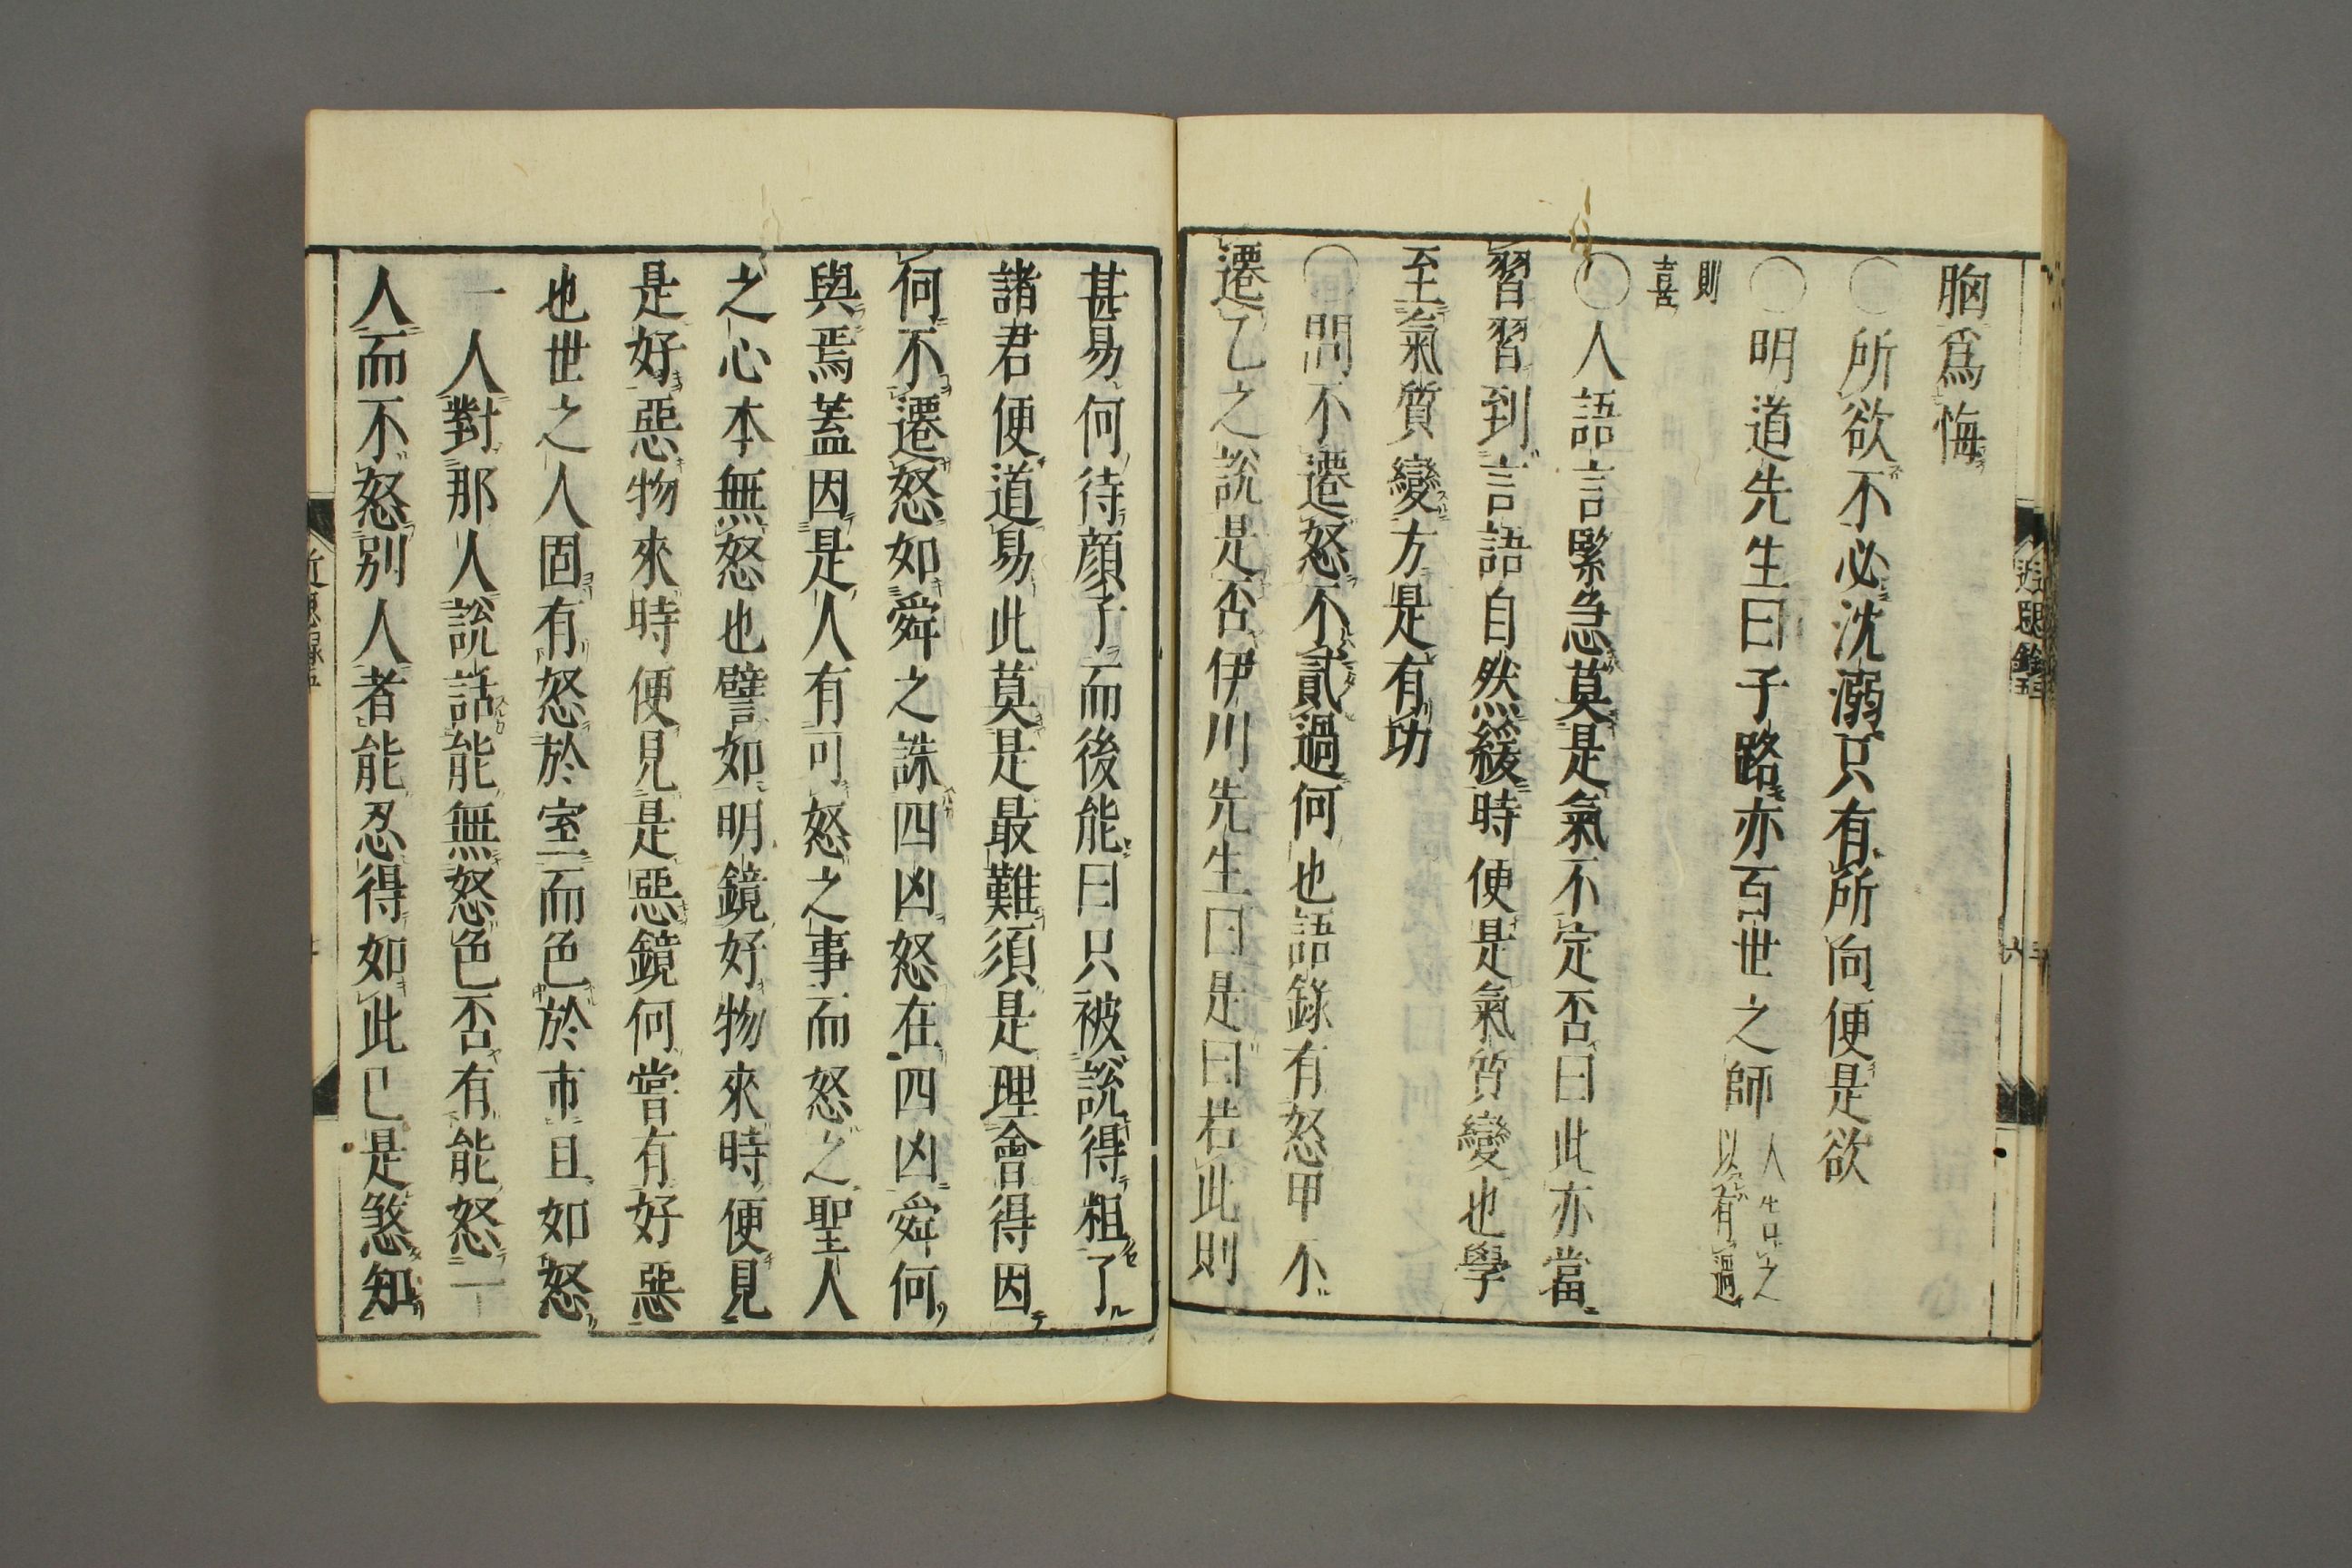 胸爲悔
○所欲不必沈溺只有所向便是欲
○明道先生曰子路亦百世之師
人告之
以有過
則
喜
○人語言緊急莫是氣不定否曰此亦當
習習到言語自然緩時便是氣質變也學
至氣質變方是有功
○問不遷怒不貳過何也語錄有怒甲不
遷乙之說是否伊川先生曰是曰若此則
近思錄五
六
甚易何待顔子而後能曰只被說得粗了
諸君便道易此莫是最難須是理會得因
何不遷怒如舜之誅四凶怒在四凶舜何
與焉蓋因是人有可怒之事而怒之聖人
之心本無怒也譬如明鏡好物來時便見
是好惡物來時便見是惡鏡何嘗有好惡
也世之人固有怒於室而色於市且如怒
一人對那人說話能無怒色否有能怒一
人而不怒別人者能忍得如此已是煞知
近思錄五